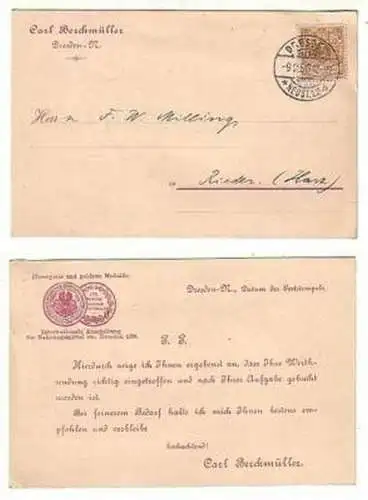 Carl Berchmüller
Dresden-N.
Herrn F. W. Milling,
in Rieder. (Harz)
Ehrenpreis und goldene Medaille.
Internationale Ausstellung
für Nahrungsmittel etc. Dresden, 1894.
Dresden-N., Datum des Poststempels.
P. P.
Hierdurch zeige ich Ihnen ergebenst an, dass Ihre Werth-
sendung richtig eingetroffen und nach Ihrer Aufgabe gebucht
worden ist.
Bei fernerem Bedarf halte ich mich Ihnen bestens em-
pfohlen und verbleibe
hochachtend!
Carl Berchmüller.